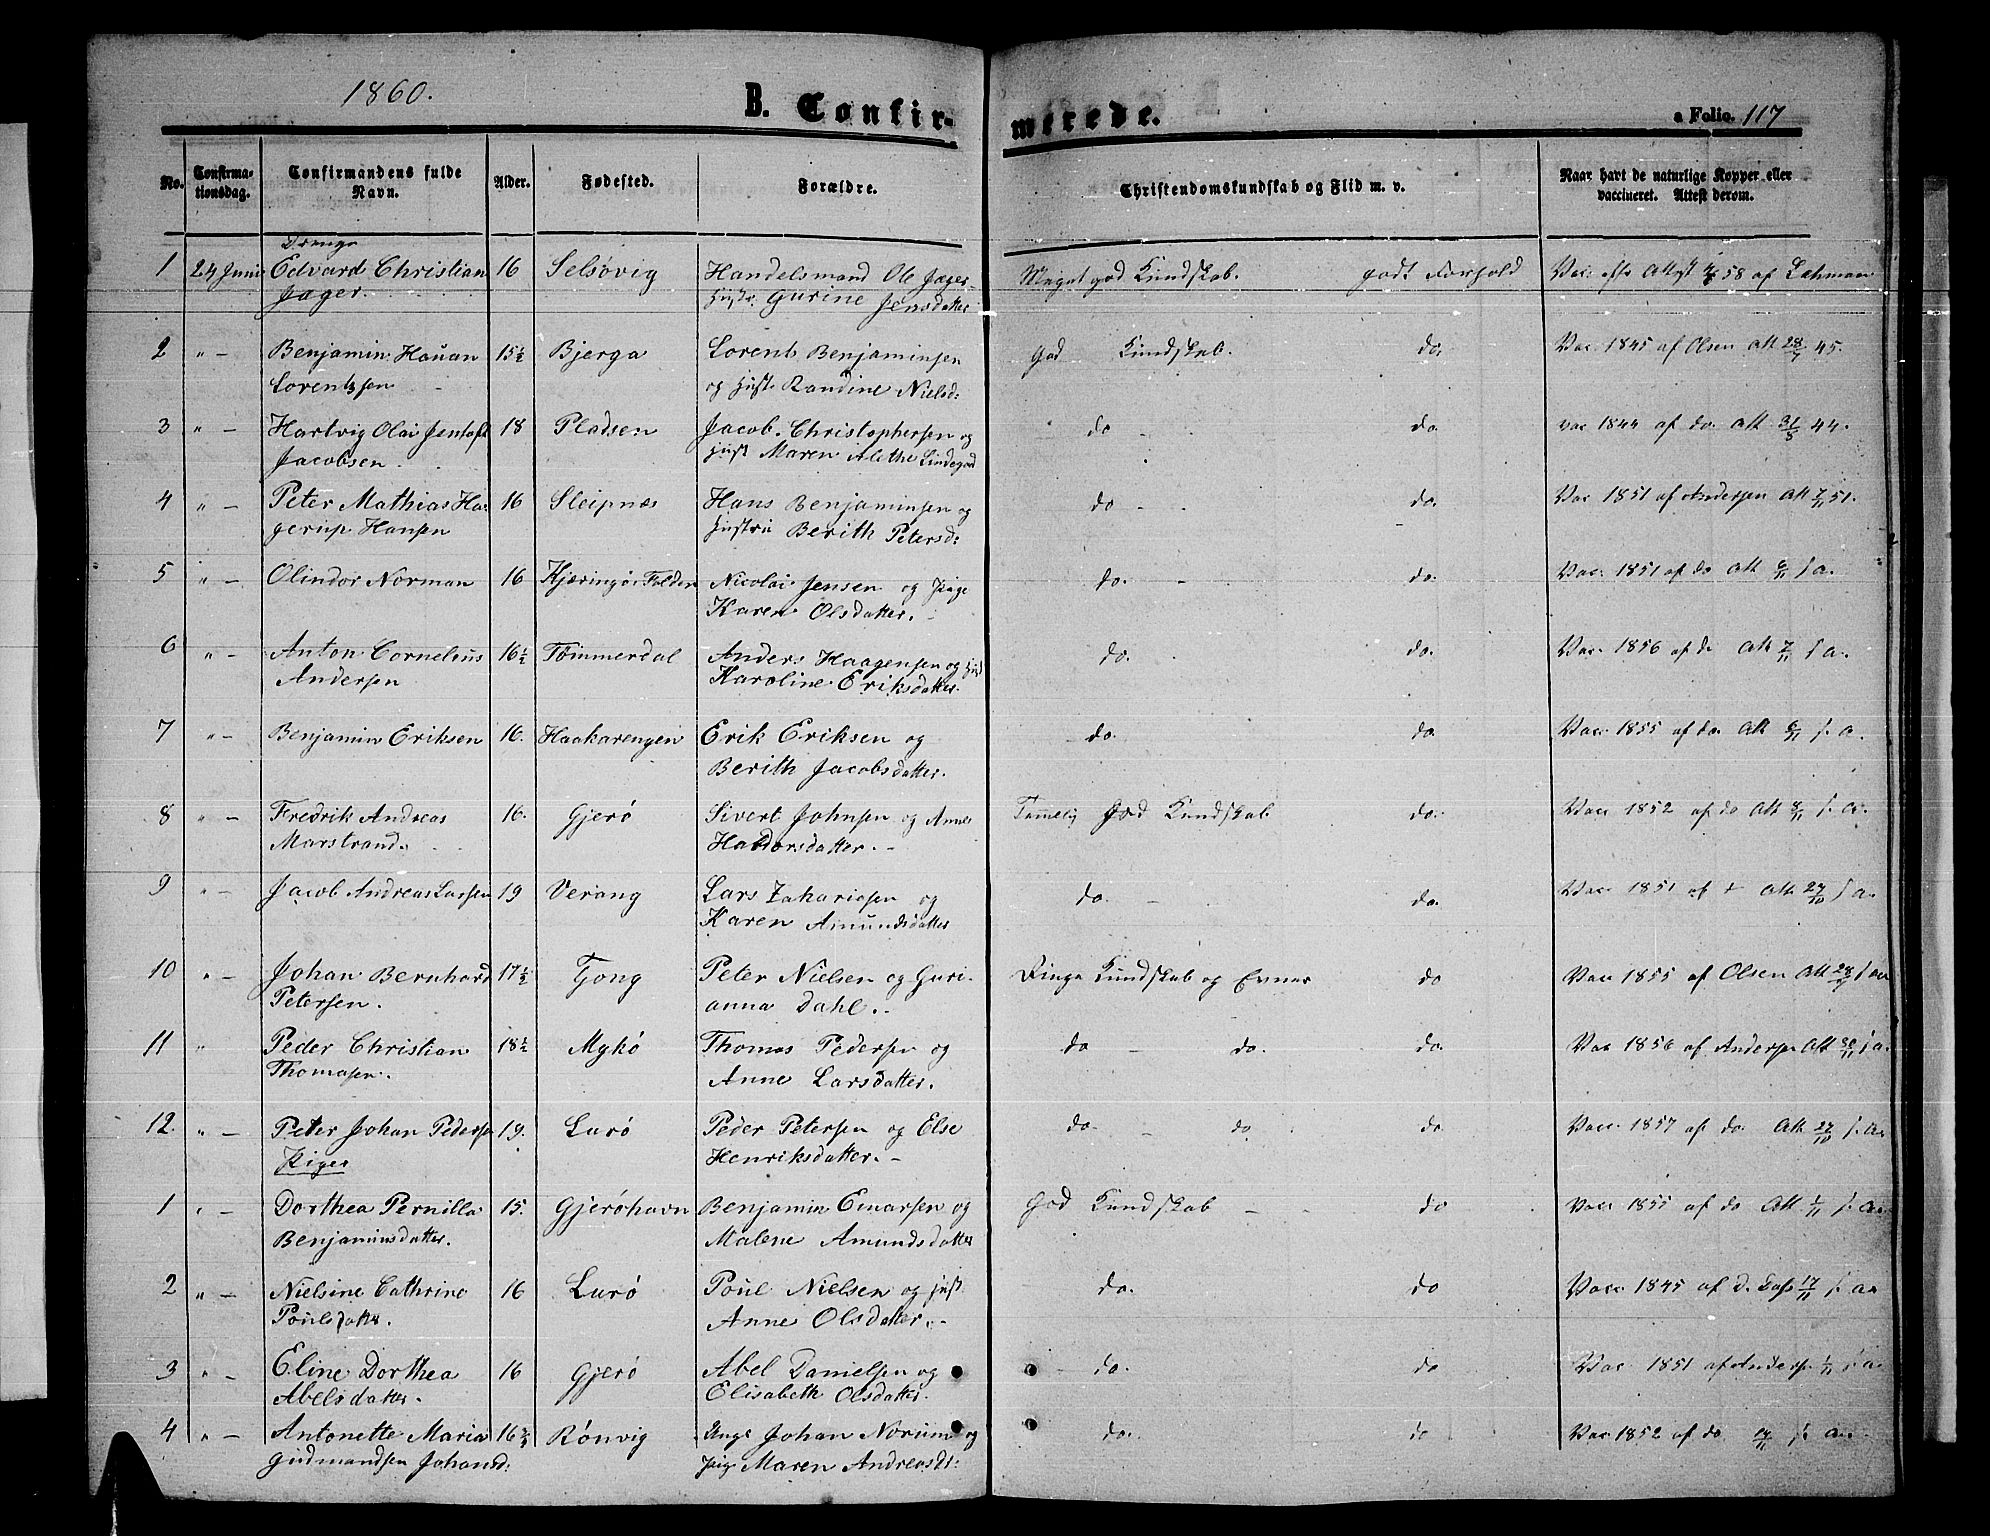 1860.
B. Confirmerede.
a Folio. 117
No. Confirmationsdag. Confirmandens fulde Navn. Alder. Fødested. Forældre. Christendomskundskab og Flid m. v. Naar havt de naturlige Kopper eller vaccineret. Attest derom.
Drenge
1 24 Juni Edvard Christian 16 Selsövig Handelsmand Ole Jæger Meget god Kundskab. godt Forhold Vac. Attest 58 af Lehman
Jæger. Hustr. Gurine Jensdatter
2 " — Benjamin Hauan 15½ Bjerga Lorents Benjaminsen God Kundskab. do. Vac. 1845 af Olsen Att 28/7 45.
Lorentsen og Hust. Randine Nielsd:
3 " — Hartvig Olai Jentoft 18 Pladsen Jacob Christophersen og do do. vac 1844 af do. Att 31/8 44.
Jacobsen. Hust Maren Alethe Lindegad
4 " — Peter Mathias Ha- 16 Sleipnæs Hans Benjaminsen og do do. Vac 1851 af Andersen Att 7/11 51.
gerup Hansen Hustru Berith Petersd:
5 " — Olindor Norman 16 Kjæringö i Folden Nicolai Jensen og Pige do. do. Vac. 1851 af do Att 6/11 s. a.
Karen Olsdatter.
6 " — Anton Cornelius 16½ Tömmerdal Anders Haagensen og Hust do. do. Vac. 1856 af do Att 7/11 s. a.
Andersen Karoline Eriksdatter.
7 " — Benjamin Eriksen 16. Haakarengen Erik Eriksen og do. do Vac. 1855 af do. Att 6/11 s. a.
Berith Jacobsdatter.
8 " — Fredrik Andreas 16. Gjerö Sivert Johnsen og Anne Temmelig God Kundskab do. Vac 1852 af do Att 8/11 s. a.
Marstrand. Haldorsdatter. —
9 " — Jacob Andreas Larsen 19 Verang Lars Zakariasen og do. do. Vac. 1851 af + Att 27/10 s a.
Karen Amundsdatter
10 " Johan Bernhard 17½ Tjong Peter Nielsen og Guri- Ringe Kundskab og Evner do Vac 1855 af Olsen Att 28/ s a
Petersen. anna Dahl.
11 " Peder Christian 18½ Mykö Thomas Pedersen og do — do. do. Vac 1856 af Andersen Att 30/11 s a.
Thomasen. Anne Larsdatter.
12. " — Peter Johan Pedersen 19. Lurö Peder Petersen og Else do. — do. do Vac. 1857 af do. Att 27/10 s. a.
Henriksdatter. —
Piger
1 " — Dorthea Pernilla 15. Gjeröhavn Benjamin Einarsen og God Kundskab — do Vac. 1855 af do Att 1/11 s. a.
Benjaminsdatter. Malene Amundsdatter
2 " — Nielsine Cathrine 16 Lurö Poül Nielsen og Hust. do. do Vacc. 1845 af D. Dass 17/11 s. a.
Poülsdatter. Anne Olsdatter.
3 " — Eline Dorthea 16 Gjerö Abel Danielsen og do. do Vac. 1851 af Andersen 1/11 s. a.
Abelsdatter. Elisabeth Olsdatter.
4 " — Antonette Maria 16¾ Rönvig Ungk. Johan Norum og do. do Vac. 1852 af do 14/11 s. a.
Gudmandsen Johansd: Pige Maren Andreasdt: